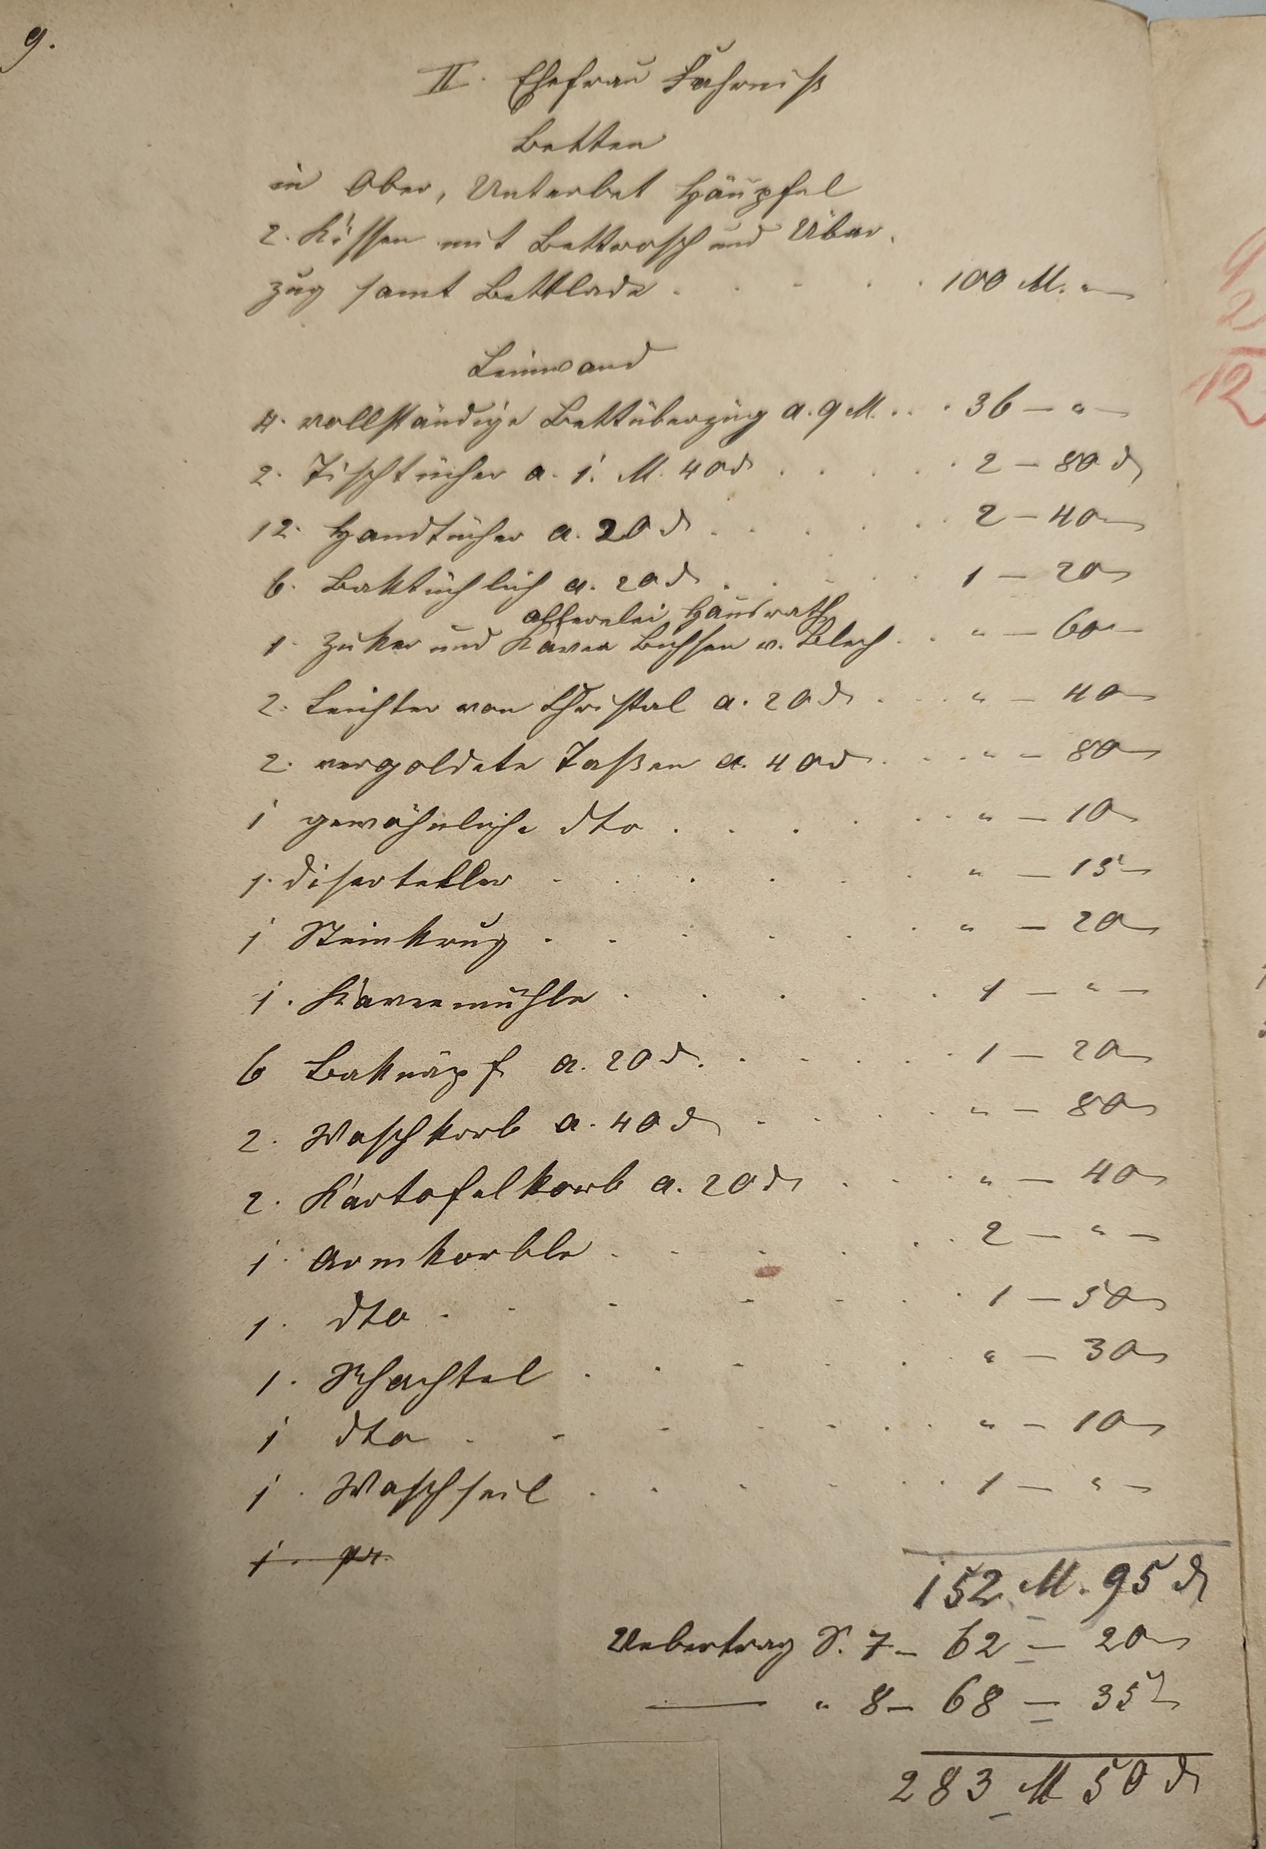 9.
II. Ehefrau Fahrniß
Betten
in Ober, Unterbet Häupfel
2. Kissen mit Bettrosch und Über-
zug samt Bettlade . . . . . 100 M. "—
Leinwand
4. vollständige Bettüberzüg a. 9 M. . . . 36 — " —
2. Tischtücher a. 1. M. 40 d . . . . . 2 — 80 d
12. Handtücher a. 20 d . . . . . 2 — 40
6. Baktüchlich a. 20 d . . . . . 1 — 20
allerelei Hausrath
1. Zuker und Kavee Bichsen v. Blech . . " — 60 —
2. Leichter von Christal a. 20 d . . . " — 40
2. vergoldete Taßen a. 40 d . . . " — 80
1 gewöhnliche dto . . . . . " — 10
1. diserteller . . . . . " — 15
1 Steinkrug . . . . . " — 20
1. Kaveemühle . . . . . 1 — " —
6 Baknäpf a. 20 d . . . . . 1 — 20
2. Waschkorb a. 40 d . . . . " — 80
2. Kartofelkorb a. 20 d . . . . " — 40
1. Armkorble . . . . . 2 — " —
1. dto . . . . . 1 — 50
1. Schachtel . . . . . " — 30
1 dto . . . . . " — 10
1. Waschseil . . . . . 1 — " —
1.
152 M. 95 d
Uebertrag S. 7 — 62 — 20
— " 8 — 68 — 35
283 M 50 d
9
2
12